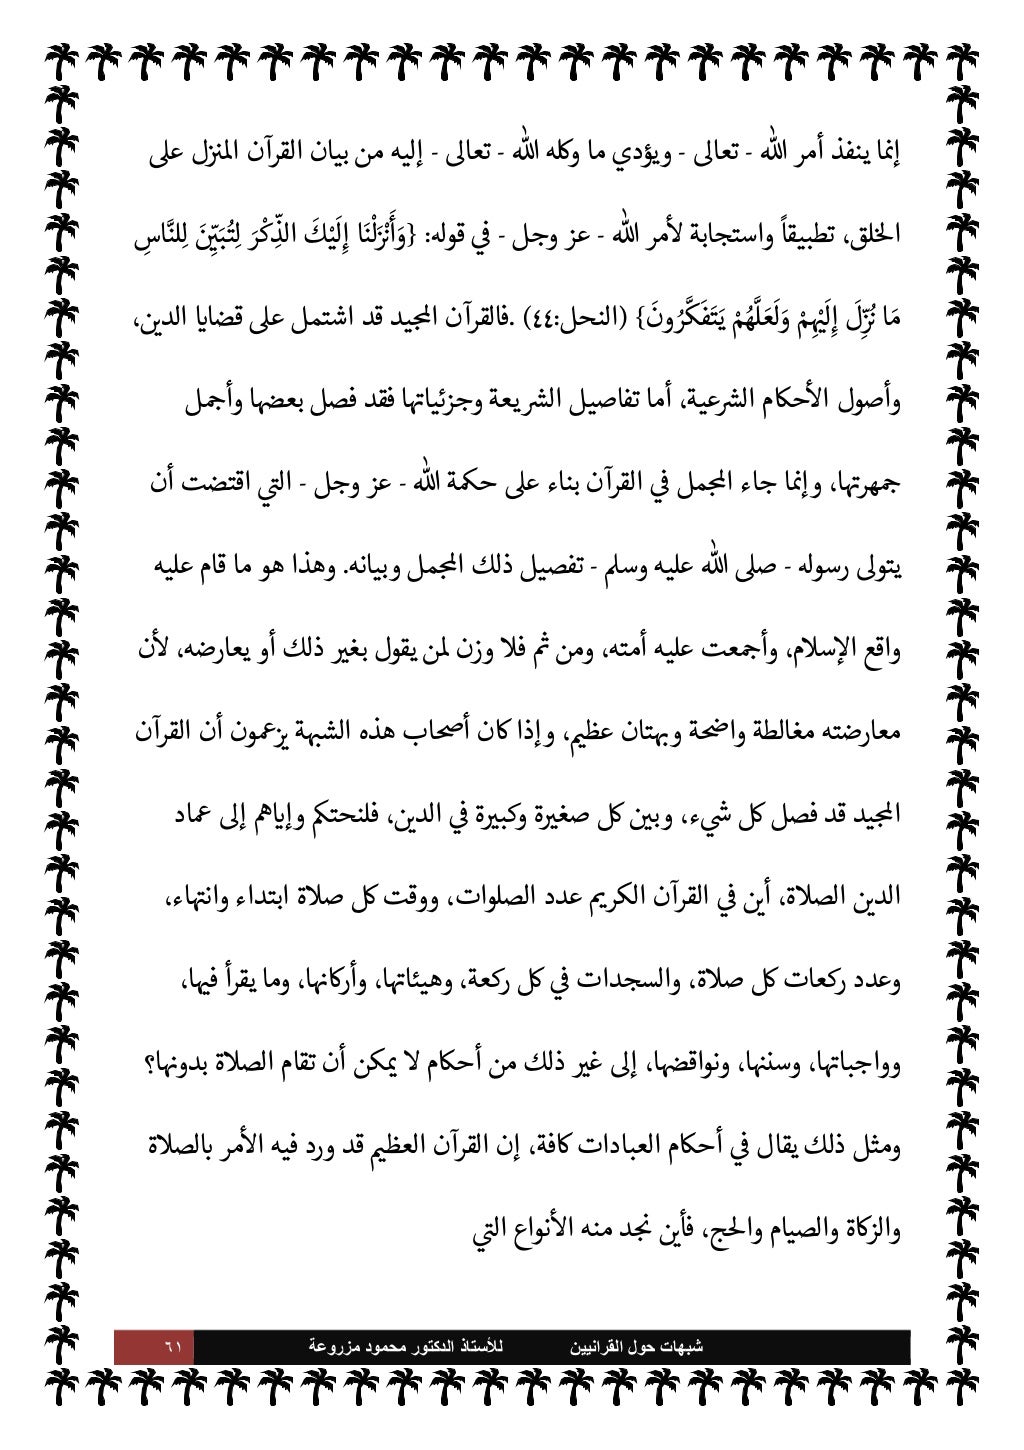 إنما ينفذ أمر الله - تعالى - ويؤدي ما وكله الله - تعالى - إليه من بيان القرآن المنزل على
الخلق، تطبيقاً واستجابة لأمر الله - عز وجل - في قوله: {وَأَنْزَلْنَا إِلَيْكَ الذِّكْرَ لِتُبَيِّنَ لِلنَّاسِ
مَا نُزِّلَ إِلَيْهِمْ وَلَعَلَّهُمْ يَتَفَكَّرُونَ} (النحل:٤٤) .فالقرآن المجيد قد اشتمل على قضايا الدين،
وأصول الأحكام الشرعية، أما تفاصيل الشريعة وجزئياتها فقد فصل بعضها وأجمل
جمهرتها، وإنما جاء المجمل في القرآن بناء على حكمة الله - عز وجل - التي اقتضت أن
يتولى رسوله - صلى الله عليه وسلم - تفصيل ذلك المجمل وبيانه. وهذا هو ما قام عليه
واقع الإسلام، وأجمعت عليه أمته، ومن ثم فلا وزن لمن يقول بغير ذلك أو يعارضه، لأن
معارضته مغالطة واضحة وبهتان عظيم، وإذا كان أصحاب هذه الشبهة يزعمون أن القرآن
المجيد قد فصل كل شيء، وبين كل صغيرة وكبيرة في الدين، فلنحتكم وإياهم إلى عماد
الدين الصلاة، أين في القرآن الكريم عدد الصلوات، ووقت كل صلاة ابتداء وانتهاء،
وعدد ركعات كل صلاة، والسجدات في كل ركعة، وهيئاتها، وأركانها، وما يقرأ فيها،
وواجباتها، وسننها، ونواقضها، إلى غير ذلك من أحكام لا يمكن أن تقام الصلاة بدونها؟
ومثل ذلك يقال في أحكام العبادات كافة، إن القرآن العظيم قد ورد فيه الأمر بالصلاة
والزكاة والصيام والحج، فأين نجد منه الأنواع التي
شبهات حول القرانيين للأستاذ الدكتور محمود مزروعة ٦١